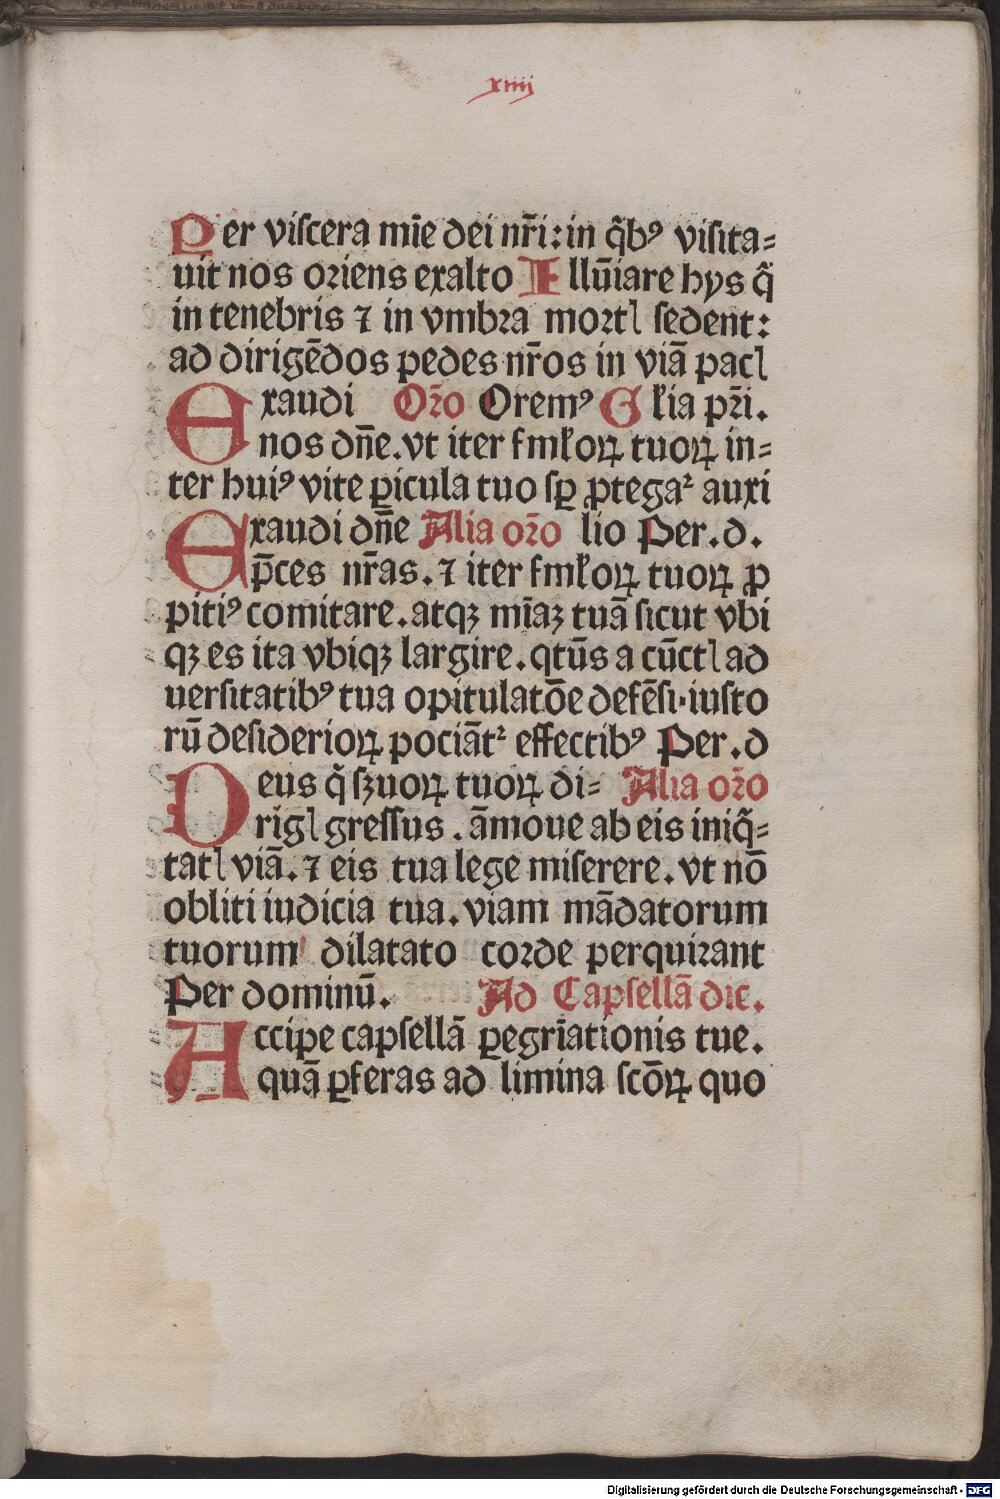 xiiij
Per viſcera mīe dei nr̄i: in q̄bꝰ viſita⸗
uit nos oꝛiens exalto Illūiare hys q̄
in tenebris ⁊ in vmbꝛa moꝛtꝭ ſedent:
ad dirigēdos pedes nr̄os in viā pacꝭ
Exaudi Oꝛ̄o Oremꝰ Gl̄ia pꝛ̄i.
nos dn̄e. vt iter fml̄oꝝ tuoꝝ in⸗
ter huiꝰ vite ꝑicula tuo ſꝑ ꝓtegaꝛ auxi
Exaudi dn̄e Alia oꝛ̄o lio Per. d.
p̄ces nr̄as. ⁊ iter fml̄oꝝ tuoꝝ ꝓ
pitiꝰ comitare. atqꝫ mīaꝫ tuā ſicut vbi
qꝫ es ita vbiqꝫ largire. qtūs a cūctꝭ ad
uerſitatibꝰ tua opitulatōe defēſi. iuſto
rū deſiderioꝝ pociātꝛ effectibꝰ Per. d
Deus q̄ ſꝫuoꝝ tuoꝝ di⸗ Alia oꝛ̄o
rīgꝭ greſſus. āmoue ab eis iniq̄⸗
tatꝭ viā. ⁊ eis tua lege miſerere. vt nō
obliti iudicia tua. viam mādatorum
tuorum dilatato coꝛde perquirant
Per dominū. Ad Capſellā dic.
Accipe capſellā ꝑegrīationis tue.
quā ꝑferas ad limina ſcōꝝ quo
Digitalisierung gefördert durch die Deutsche Forschungsgemeinschaft - DFG